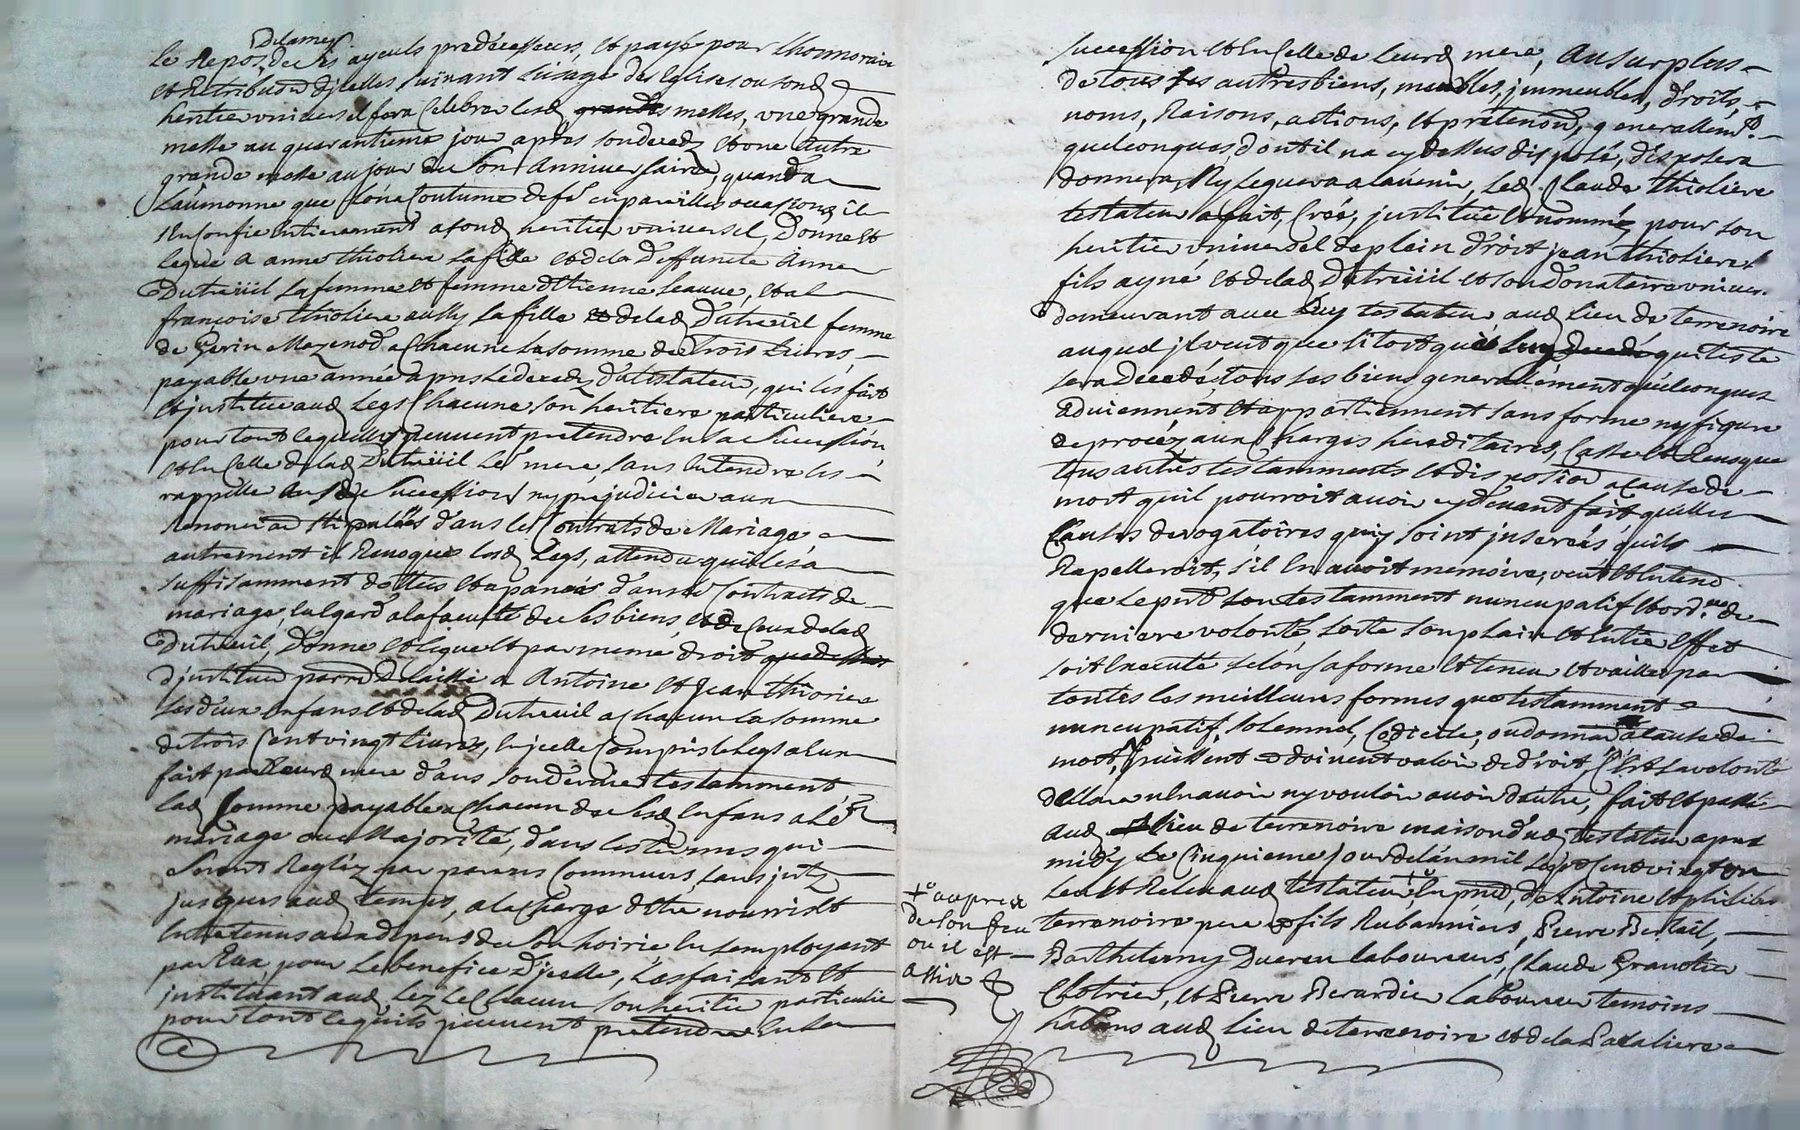 De lame
le Repos de ses ayeuls predecesseurs, et payé pour Lhonnoraire
et Retribu͠on d'jcelles suivant Lusage des Eglises ou sond
heritier universel fera Celebrer lesd grandes messes, une grande
messe au quarantieme jour apres son deced et une autre
grande messe au jour de son Anniversaire, quand a
Laumonne que lon a Coutume de fe en pareilles occasions il
s'en Confie entierement a sond heritier universel, Donne et
legue a anne thioliere sa fille et de la deffuncte Anne
Dutreüil sa femme et femme d'Etienne Leauue, et a
françoise thioliere aussy sa fille et de lad Dutreüil femme
de Gerin Mazenod a Chacune la somme de trois Livres
payable une année apres le deced d'u testateur, qui les fait
et jnstitue aud Legs Chacune son heritiere particuliere
pour tout ce quelles peuvent pretendre en sa Succession
et en Celle de lad Dutreüil Leˢ mere, sans entendre les
rappeller aux d Successions ny prejudicier aux
Renonciao͠n stipulées d'ans les Contrats de Mariage,
autrement il Revoque lesd Legs, attendu qu'il les a
suffisamment dottées et apanées d'ans Contracts de
mariage, en egard a la faculté de ses biens, et de Ceux de lad
Dutreüil, Donne et legue et par meme droit que dessus
d'jnstitu͠on par͠re Delaissé a Antoine et Jean thioriere
ses d'eux enfans et de lad Dutreüil a chacun la somme
de trois Cent vingt livres, en jcelle Compris le Legs a eux
fait par Leurd mere d'ans son d'ernier testamment
lad Somme payable a Chacun de sesd Enfans a Leʳ
mariage ou Majorité, d'ans les termes qui
Seront Reglez par parans Communs, sans jnts
jusques aud temps, a la Charge d'etre nourris et
Entretenus aux depens de son hoirie en semployant
par Eux, pour Le benefice d'jcelle, Les faisant et
jnstituant aud Legz Le Chacun son heritier particulier
pour tout ce quils peuvent pretendre en sa
Succession et en Celle de leurd mere, Au surplus
de tous ses autres biens, meubles, jmmeubles, droits,
noms, Raisons, actions, et pretend͠on, generallemᵗ
quelconques dont il na cy dessus disposé, disposera
donnera, Ny leguera a lavenir, Led Claude thioliere
testateur a fait, Créé, jnstitué et nommé, pour son
heritier universel de plein droit jean thioliere
fils ayné et de lad Dutreüil et son Donataire univer.
Demeurant avec luy testateur aud lieu de terrenoire
auquel jl veut que sitost que luy qui teste
sera decedé, tous ses biens generalement quelconques
adviennent et appartiennent sans forme ny figure
de procez aux Charges hereditaires, Casse et Revoque
tous autres testamments et disposi͠on a cause de
mort quil pourroit avoir cy devant fait quelles
Causes derogatoires qui y soint jnserées, quils
Rapelleroit, s'il en avoit memoire, veut et entend
que le pn͠t son testamment nuncupatif et ord.ce de
derniere volonté, sorte son plain et entier effet
soit Executé selon sa forme et teneur et vaille par
toutes les meilleures formes que testamment
nuncupatif, solemnel, Codicile, ou donnao͠n a cause de
mort, puissent et doivent valoir de droit, C'est sa volonté
declare nen avoir ny vouloir avoir d'autre, fait et passé
aud lieu de terrenoire maison dud testateur apres
midy Le Cinquieme jour de lan mil sept Cent vingt un
Leu et Releu aud testateur, En pn͠ce, de Antoine et philibert
terrenoire pere et fils Rubanniers, Pierre
Barthelemy Ducreu laboureurs, Claude Granotier
Clotrier, et Pierre Berardier laboureur temoins
habitans aud lieu de terrenoire et de la
+ aupres
de son feu
ou il est
assis